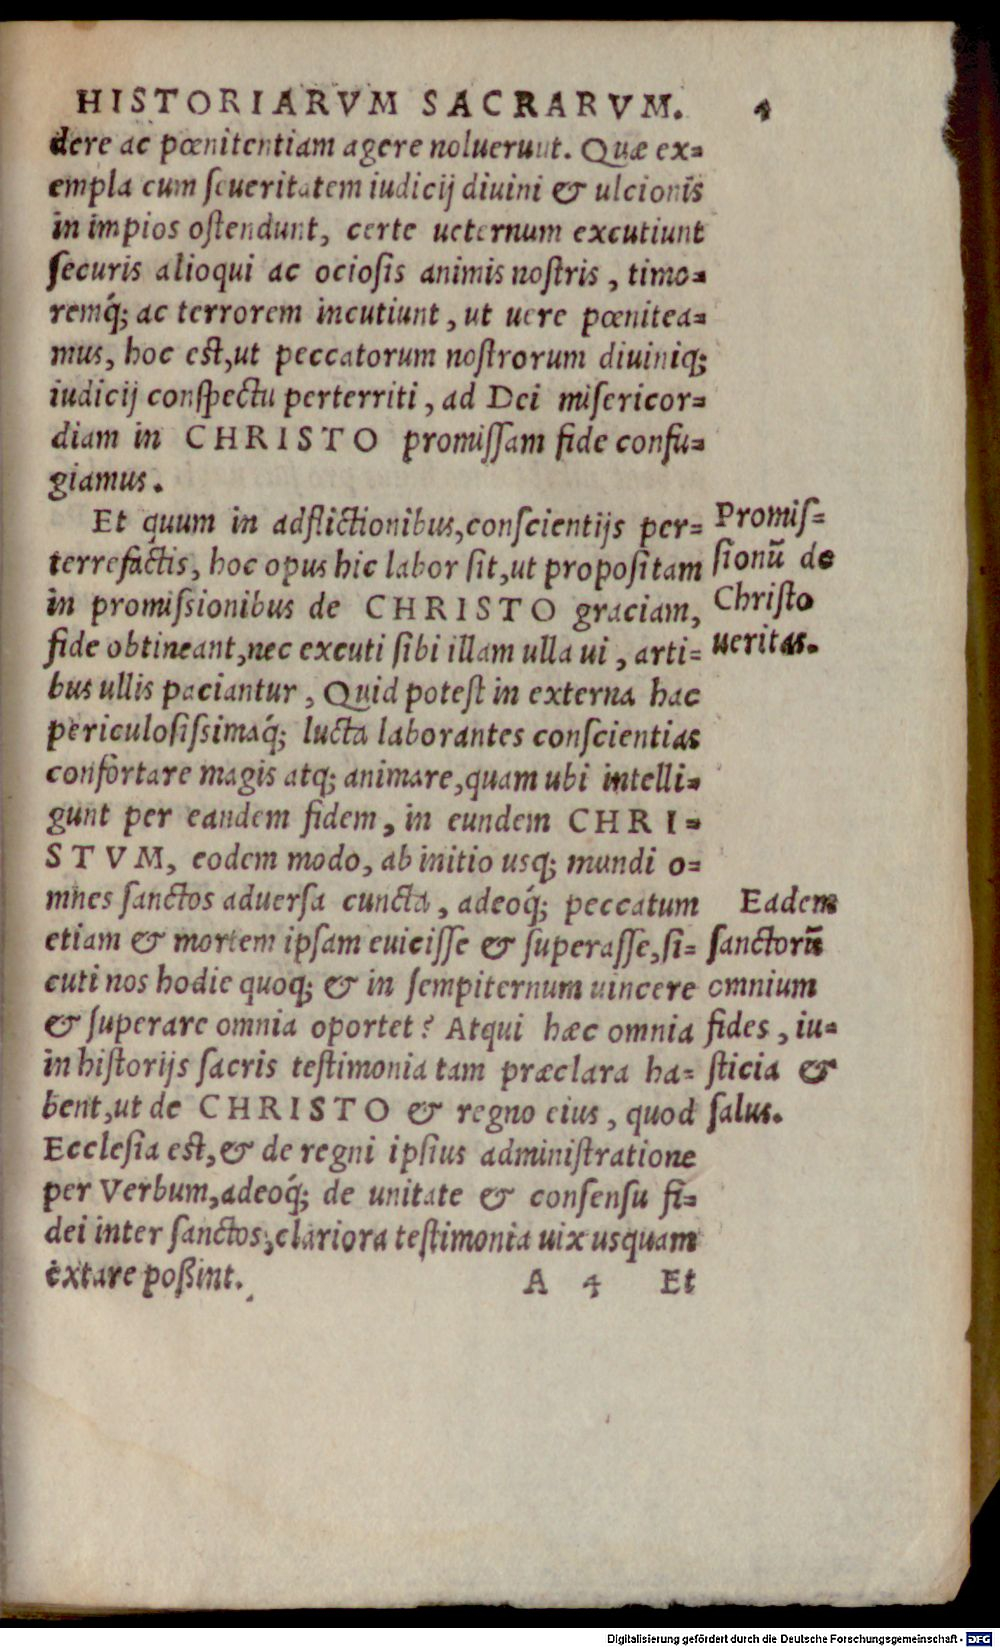 HISTORIARVM SACRARVM. 4
dere ac pœnitentiam agere noluerunt. Quæ ex=
empla cum ſeueritatem iudicij diuini & ulcionis
in impios oſtendunt, certe ueternum excutiunt
ſecuris alioqui ac ocioſis animis noſtris, timo=
remq́; ac terrorem incutiunt, ut uere pœnitea=
mus, hoc est, ut peccatorum noſtrorum diuiniq;
iudicij conſpectu perterriti, ad Dei miſericor=
diam in CHRISTO promiſſam fide confu=
giamus.
Et quum in adflictionibus, conſcientijs per=
terrefactis, hoc opus hic labor ſit, ut propoſitam
in promiſsionibus de CHRISTO graciam,
fide obtineant, nec excuti ſibi illam ulla ui, arti=
bus ullis paciantur, Quid poteſt in externa hac
periculoſiſsimaq́; lucta laborantes conſcientias
confortare magis atq; animare, quam ubi intelli=
gunt per eandem fidem, in eundem CHRI=
STVM, eodem modo, ab initio usq; mundi o=
mnes ſanctos aduerſa cuncta, adeoq́; peccatum
etiam & mortem ipſam euiciſſe & ſuperaſſe, ſi=
cuti nos hodie quoq; & in ſempiternum uincere
& ſuperare omnia oportet? Atqui hæc omnia
in hiſtorijs ſacris teſtimonia tam præclara ha=
bent, ut de CHRISTO & regno eius, quod
Eccleſia est, & de regni ipſius adminiſtratione
per Verbum, adeoq́; de unitate & conſenſu fi=
dei inter ſanctos, clariora teſtimonia uix usquam
extare poßint.
A 4 Et
Promiſ=
ſionū de
Chriſto
ueritas.
Eadem
ſanctorū
omnium
fides, iu=
ſticia &
ſalus.
Digitalisierung gefördert durch die Deutsche Forschungsgemeinschaft - DFG